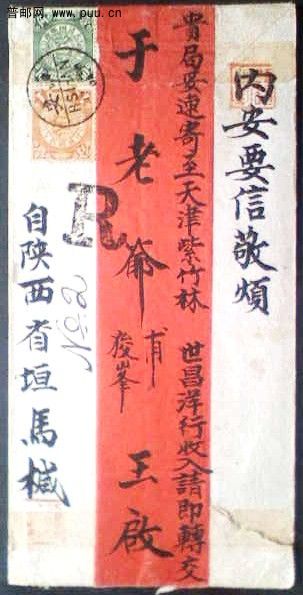 普邮网 www.puu.com.cn
内安要信敬煩
貴局妥速寄至天津紫竹林 世昌洋行收入請即轉交
于老爺 甫 峻峯 玉啟
自陕西省垣馬椷
R
No. 2